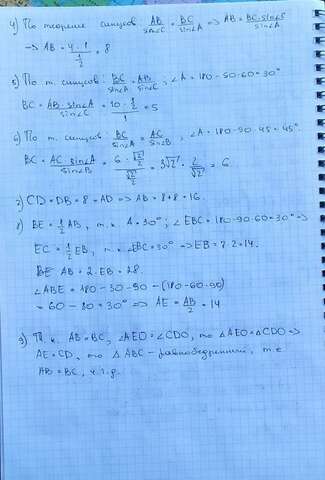 4) По теореме синусов: AB/sin∠C = BC/sin∠A => AB = BC·sin∠C/sin∠A
=> AB = 4·1/(1/2) = 8
5) По т. синусов: BC/sin∠A = AB/sin∠C, ∠A = 180-90-60=30°
BC = AB·sin∠A/sin∠C = 10·1/2/1 = 5
6) По т. синусов: BC/sin∠A = AC/sin∠B, ∠A = 180-90-45=45°.
BC = AC sin∠A/sin∠B = 6·√2/2/√2/2 = 3√2·2/√2 = 6.
7) CD = DB = 8 = AD => AB = 8+8=16.
8) BE = 1/2 AB, т.к. A=30°; ∠EBC = 180-90-60=30° =>
EC = 1/2 EB, т.к ∠EBC=30° => EB = 7·2=14.
AB = 2·EB = 28.
∠ABE = 180-30-90-(180-60-90)
= 60-30=30° => AE = AB/2 = 14
9) Т.к. AB=BC, ∠AEO=∠CDO, то △AEO=△CDO =>
AE=CD, то △ABC-равнобедренный, т.е
AB=BC, ч.т.д.